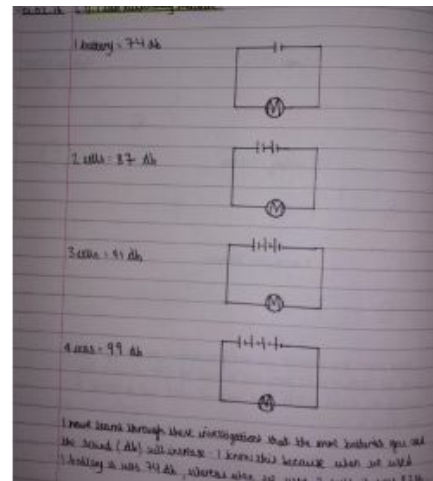 1 battery = 74 db
M
2 cells = 87 db
M
3 cells = 91 db
M
4 cells = 99 db
M
I have learnt through these investigations that the more batteries you use
the sound (db) will increase. I know this because when we used
1 battery it was 74 db, whereas when we used 2 cells it was 87 db